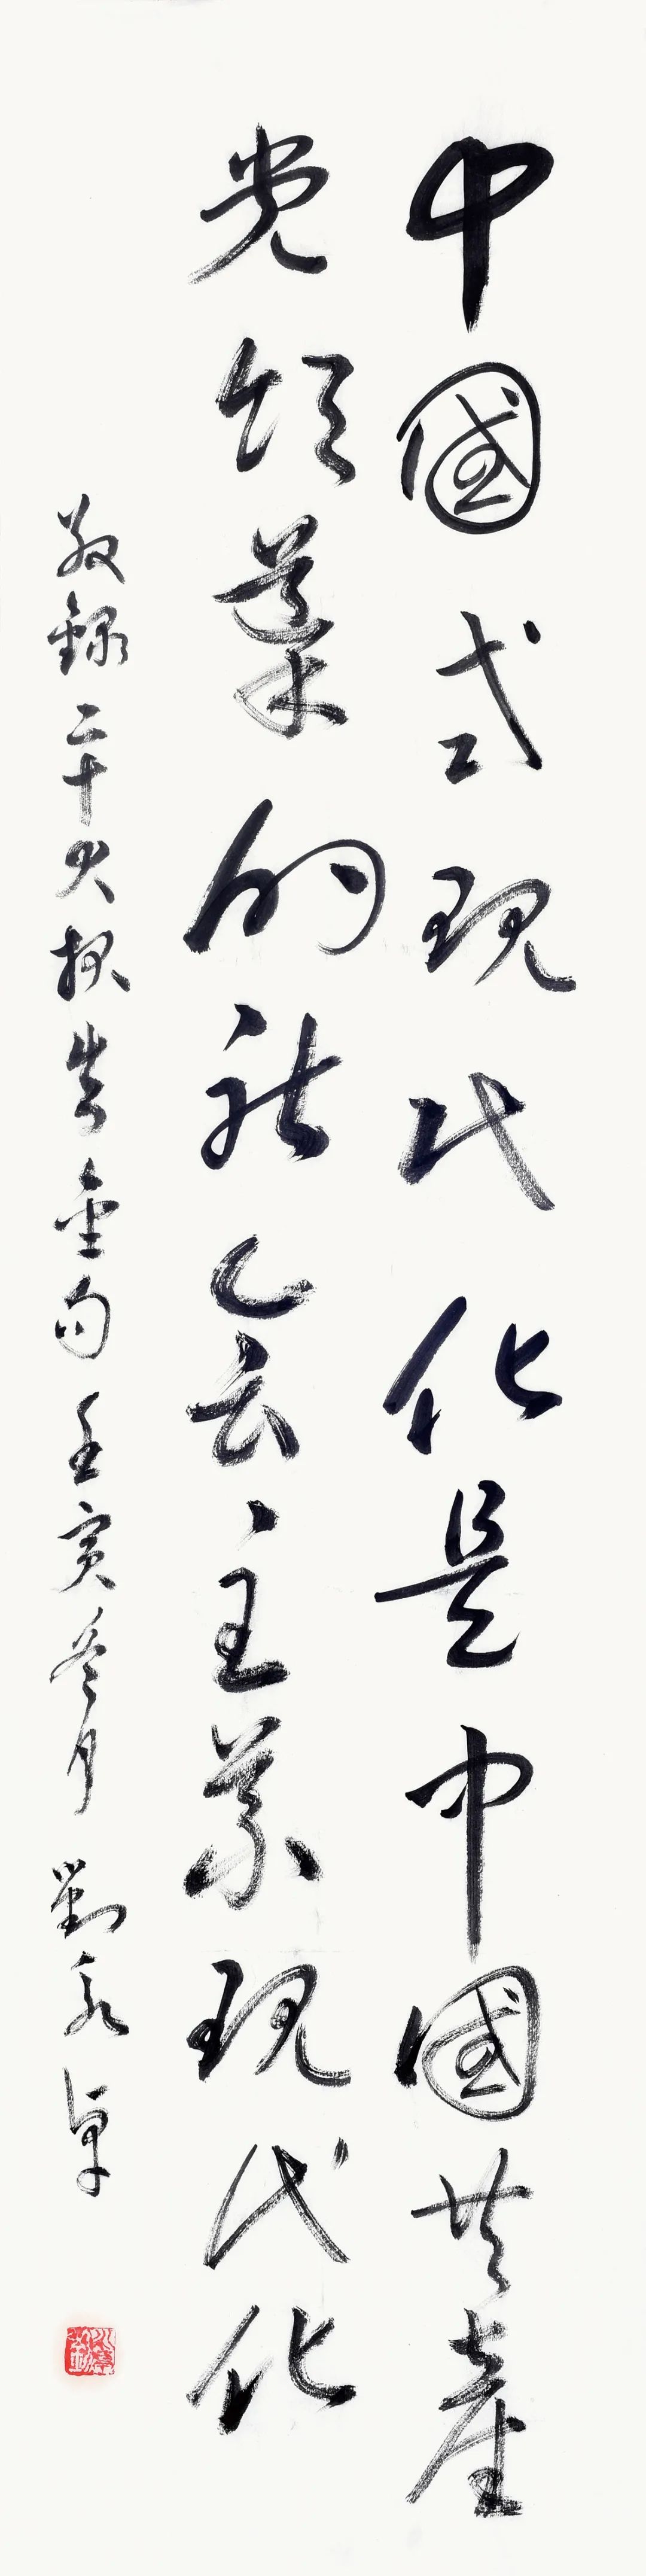 中國式現代化是中國共產
党領導的社會主義現代化
敬錄二十大报告金句 壬寅冬月 劉永卓